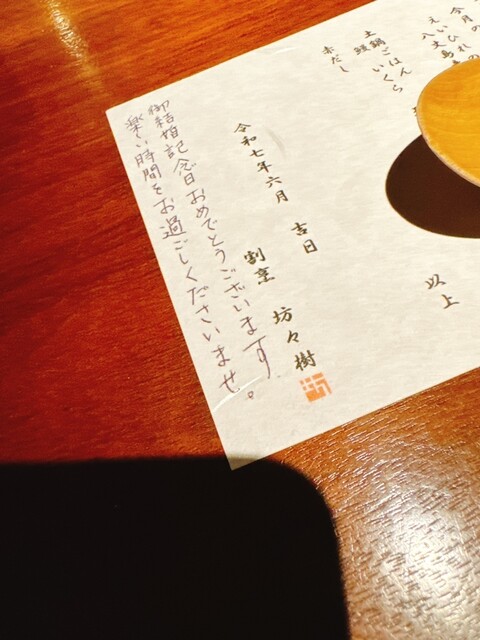 今月の
えいひれ
八丈島
土鍋ごはん
鰻 いくら
赤だし
以上
令和七年六月 吉日
割烹 坊々樹
御結婚記念日おめでとうございます
楽しい時間をお過ごしくださいませ。